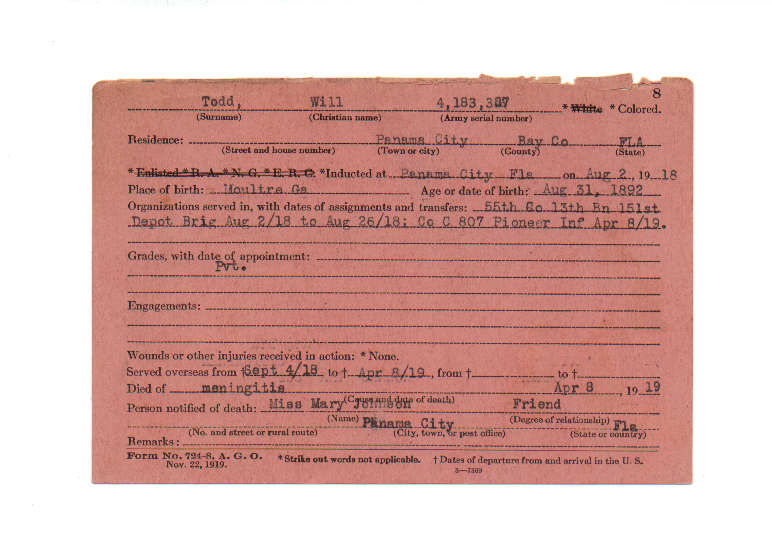 8
Todd, Will 4,183,337 * White * Colored.
(Surname) (Christian name) (Army serial number)
Residence: Panama City Bay Co FLA
(Street and house number) (Town or city) (County) (State)
* Enlisted * R. A. * N. G. * E. R. C. * Inducted at Panama City Fla on Aug 2, 1918
Place of birth: Moultra Ga Age or date of birth: Aug 31, 1892
Organizations served in, with dates of assignments and transfers: 55th Co 13th Bn 151st
Depot Brig Aug 2/18 to Aug 26/18; Co C 807 Pioneer Inf Apr 8/19.
Grades, with date of appointment:
Pvt.
Engagements:
Wounds or other injuries received in action: * None.
Served overseas from † Sept 4/18 to † Apr 8/19, from † to †
Died of meningitis Apr 8, 1919
(Cause and date of death)
Person notified of death: Miss Mary Johnson Friend
(Name) (Degree of relationship)
Panama City Fla
(No. and street or rural route) (City, town, or post office) (State or country)
Remarks:
Form No. 724-8, A. G. O. * Strike out words not applicable. † Dates of departure from and arrival in the U. S.
Nov. 22, 1919. 3—7369